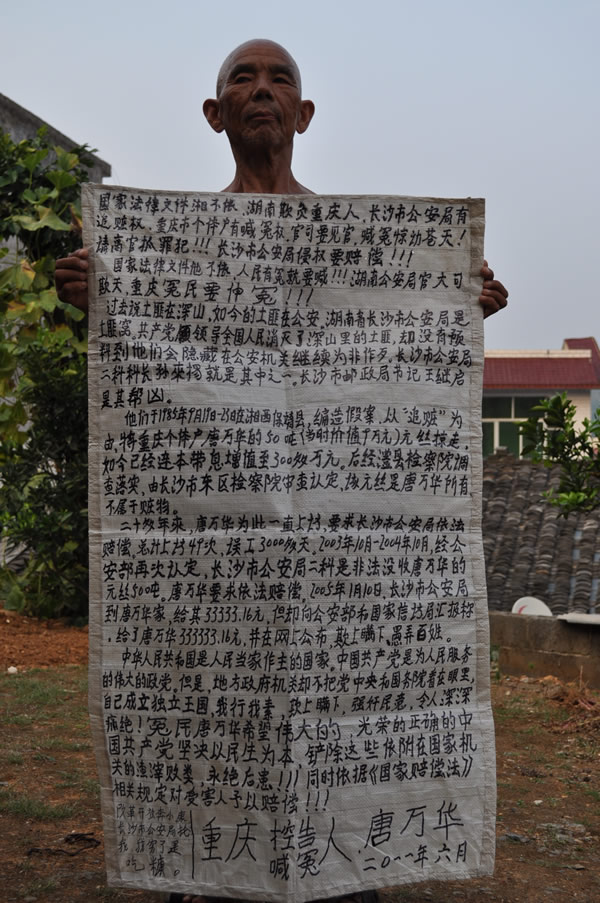 国家法律文件湘不依，湖南欺负重庆人，长沙市公安局有
追赃权，重庆市个体户有喊冤权，官司要见官，喊冤惊动苍天！
请高官抓罪犯!!! 长沙市公安局侵权要赔偿!!!
国家法律文件他不依，人民有冤就要喊!!! 湖南公安局官大可
欺天，重庆冤民要伸冤!!!
过去说土匪在深山，如今的土匪在公安，湖南省长沙市公安局是
土匪窝。共产党领导全国人民消灭了深山里的土匪，却没有预
料到他们会隐藏在公安机关继续为非作歹。长沙市公安局
二科科长孙来摺就是其中之一，长沙市邮政局书记王继启
是其帮凶。
他们于1985年9月19日-23日在湘西保靖县，编造假案，从“追赃”为
由，将重庆个体户唐万华的50吨(当时价值1万元)元丝掠走，
如今已经连本带息增值至300多万元。后经澧县检察院调
查落实，由长沙市东区检察院审查认定，该元丝是唐万华所有
不属于赃物。
二十多年来，唐万华为此一直上访，要求长沙市公安局依法
赔偿，总计上访49次，误工3000多天，2003年10月-2004年10月，经公
安部再次认定，长沙市公安局二科是非法没收唐万华的
元丝500吨。唐万华要求依法赔偿，2005年1月10日，长沙市公安局
到唐万华家，给其33333.16元，但却向公安部和国家信访局汇报称
，给了唐万华333333.16元，并在网上公布，欺上瞒下，愚弄百姓。
中华人民共和国是人民当家作主的国家。中国共产党是为人民服务
的伟大的政党。但是，地方政府机关却不把党中央和国务院看在眼里，
自己成立独立王国，我行我素，欺上瞒下，强奸民意，令人深深
痛绝！冤民唐万华希望伟大的，光荣的正确的中
国共产党坚决以民生为本，铲除这些依附在国家机
关的渣滓败类，永绝后患!!! 同时依据《国家赔偿法》
相关规定对受害人予以赔偿!!!
改革开放奔小康
长沙市公安局
我
吃糠。
重庆 控告人 唐万华
喊冤
二〇一一年六月